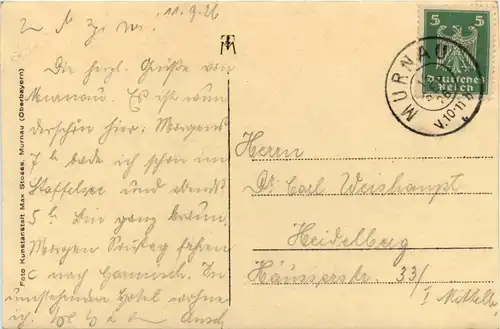 11.9.26
Die herzl. Grüße von
Murnau. Es ist wun
derschön hier. Morgens
7 h bade ich schon im
Staffelsee und abends
5 h. Bin ganz braun.
Morgen Sonntag fahren
nach Garmisch. In
umstehendem Hotel wohne
ich.
Foto Kunstanstalt Max Stoess, Murnau (Oberbayern)
5 5
Deutsches
Reich
MURNAU
V.10-11
Herrn
Dr. Carl Weishaupt
Heidelberg
Häusserstr. 33/
I Mittelb